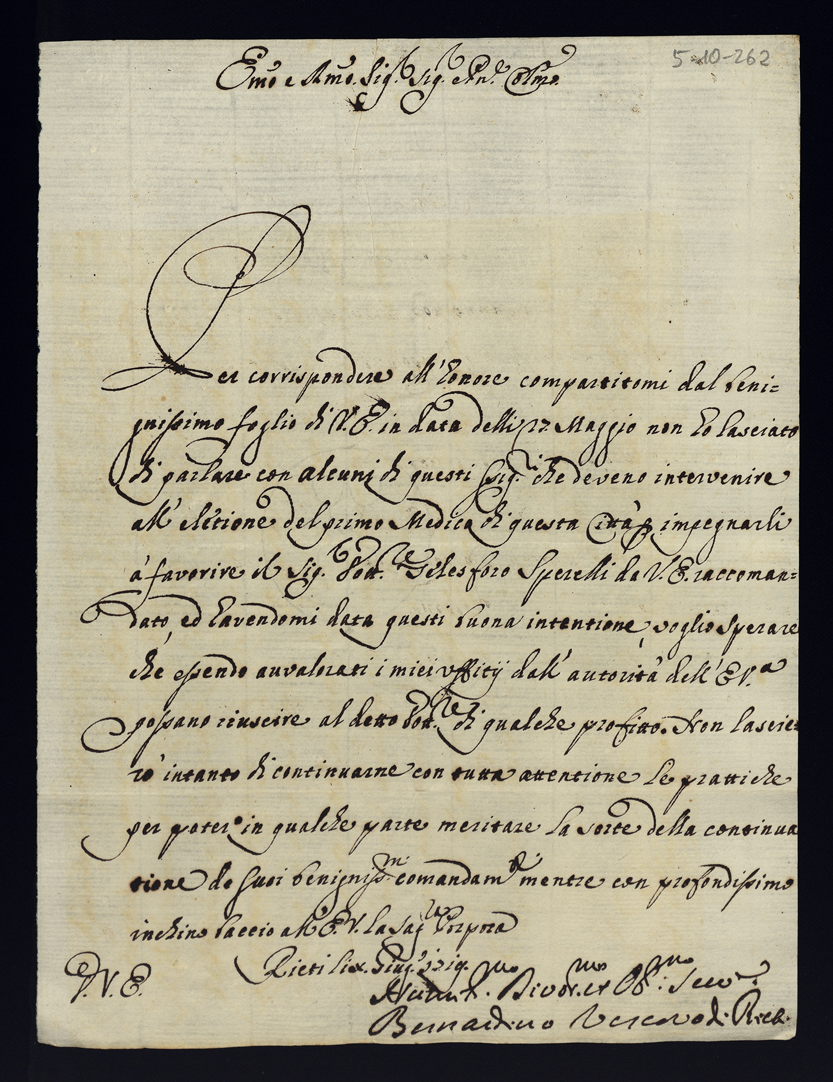 5-10-262
Emo e Rmo. Sig.r Sig. e Pne. Colmo.
Per corrispondere all'honore compartitomi dal beni=
gnissimo foglio di V.E. in data delli 17 Maggio non ho lasciato
di parlare con alcuni di questi Sig.ri che deveno intervenire
all'elettione del primo Medico di questa città p impegnarli
à favorire il Sig.r Dott.re Telesforo Sperelli da V.E. raccoman=
dato, ed havendomi data questi buona intentione, voglio sperare
che essendo auvalorati i miei uffitij dall'autorità dell'E.V.a
possano riuscire al detto Dott.re di qualche profitto. Non lascie=
rò intanto di continuarne con tutta attentione le prattiche
per poter in qualche parte meritare la sorte della continua
tione de suoi benigniss.mi comandam.ti mentre con profondissimo
inchino baccio all'E.V. la Sag.ra Porpora
D. V. E. Rieti li Giug.o
Humil.mo Divo.mo et Obl.mo Serv.re
Bernardino Vescovo di Rieti